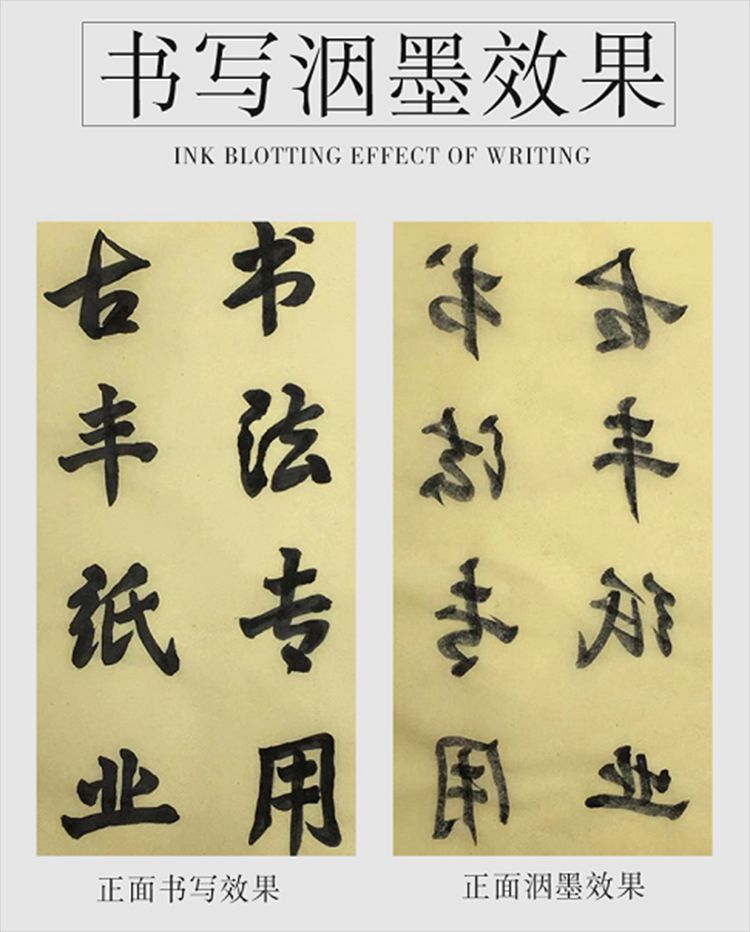 书写洇墨效果
INK BLOTTING EFFECT OF WRITING
书法专用
古丰纸业
书法专用
古丰纸业
正面书写效果
正面洇墨效果